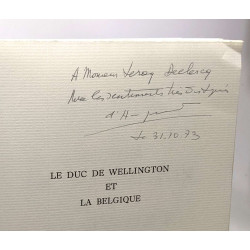 A Monsieur Leroy Declercq
Avec les sentiments très distingués
Le 31.10.73
LE DUC DE WELLINGTON
ET
LA BELGIQUE